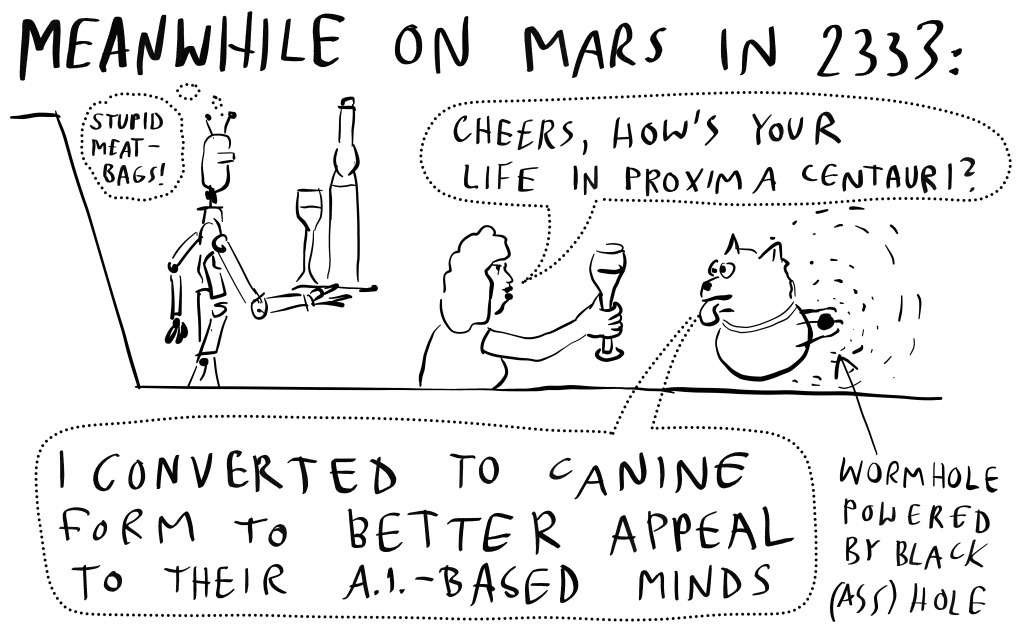 MEANWHILE ON MARS IN 2333:
STUPID
MEAT-
BAGS!
CHEERS, HOW'S YOUR
LIFE IN PROXIMA CENTAURI?
I CONVERTED TO CANINE
FORM TO BETTER APPEAL
TO THEIR A.I.-BASED MINDS
WORMHOLE
POWERED
BY BLACK
(ASS) HOLE